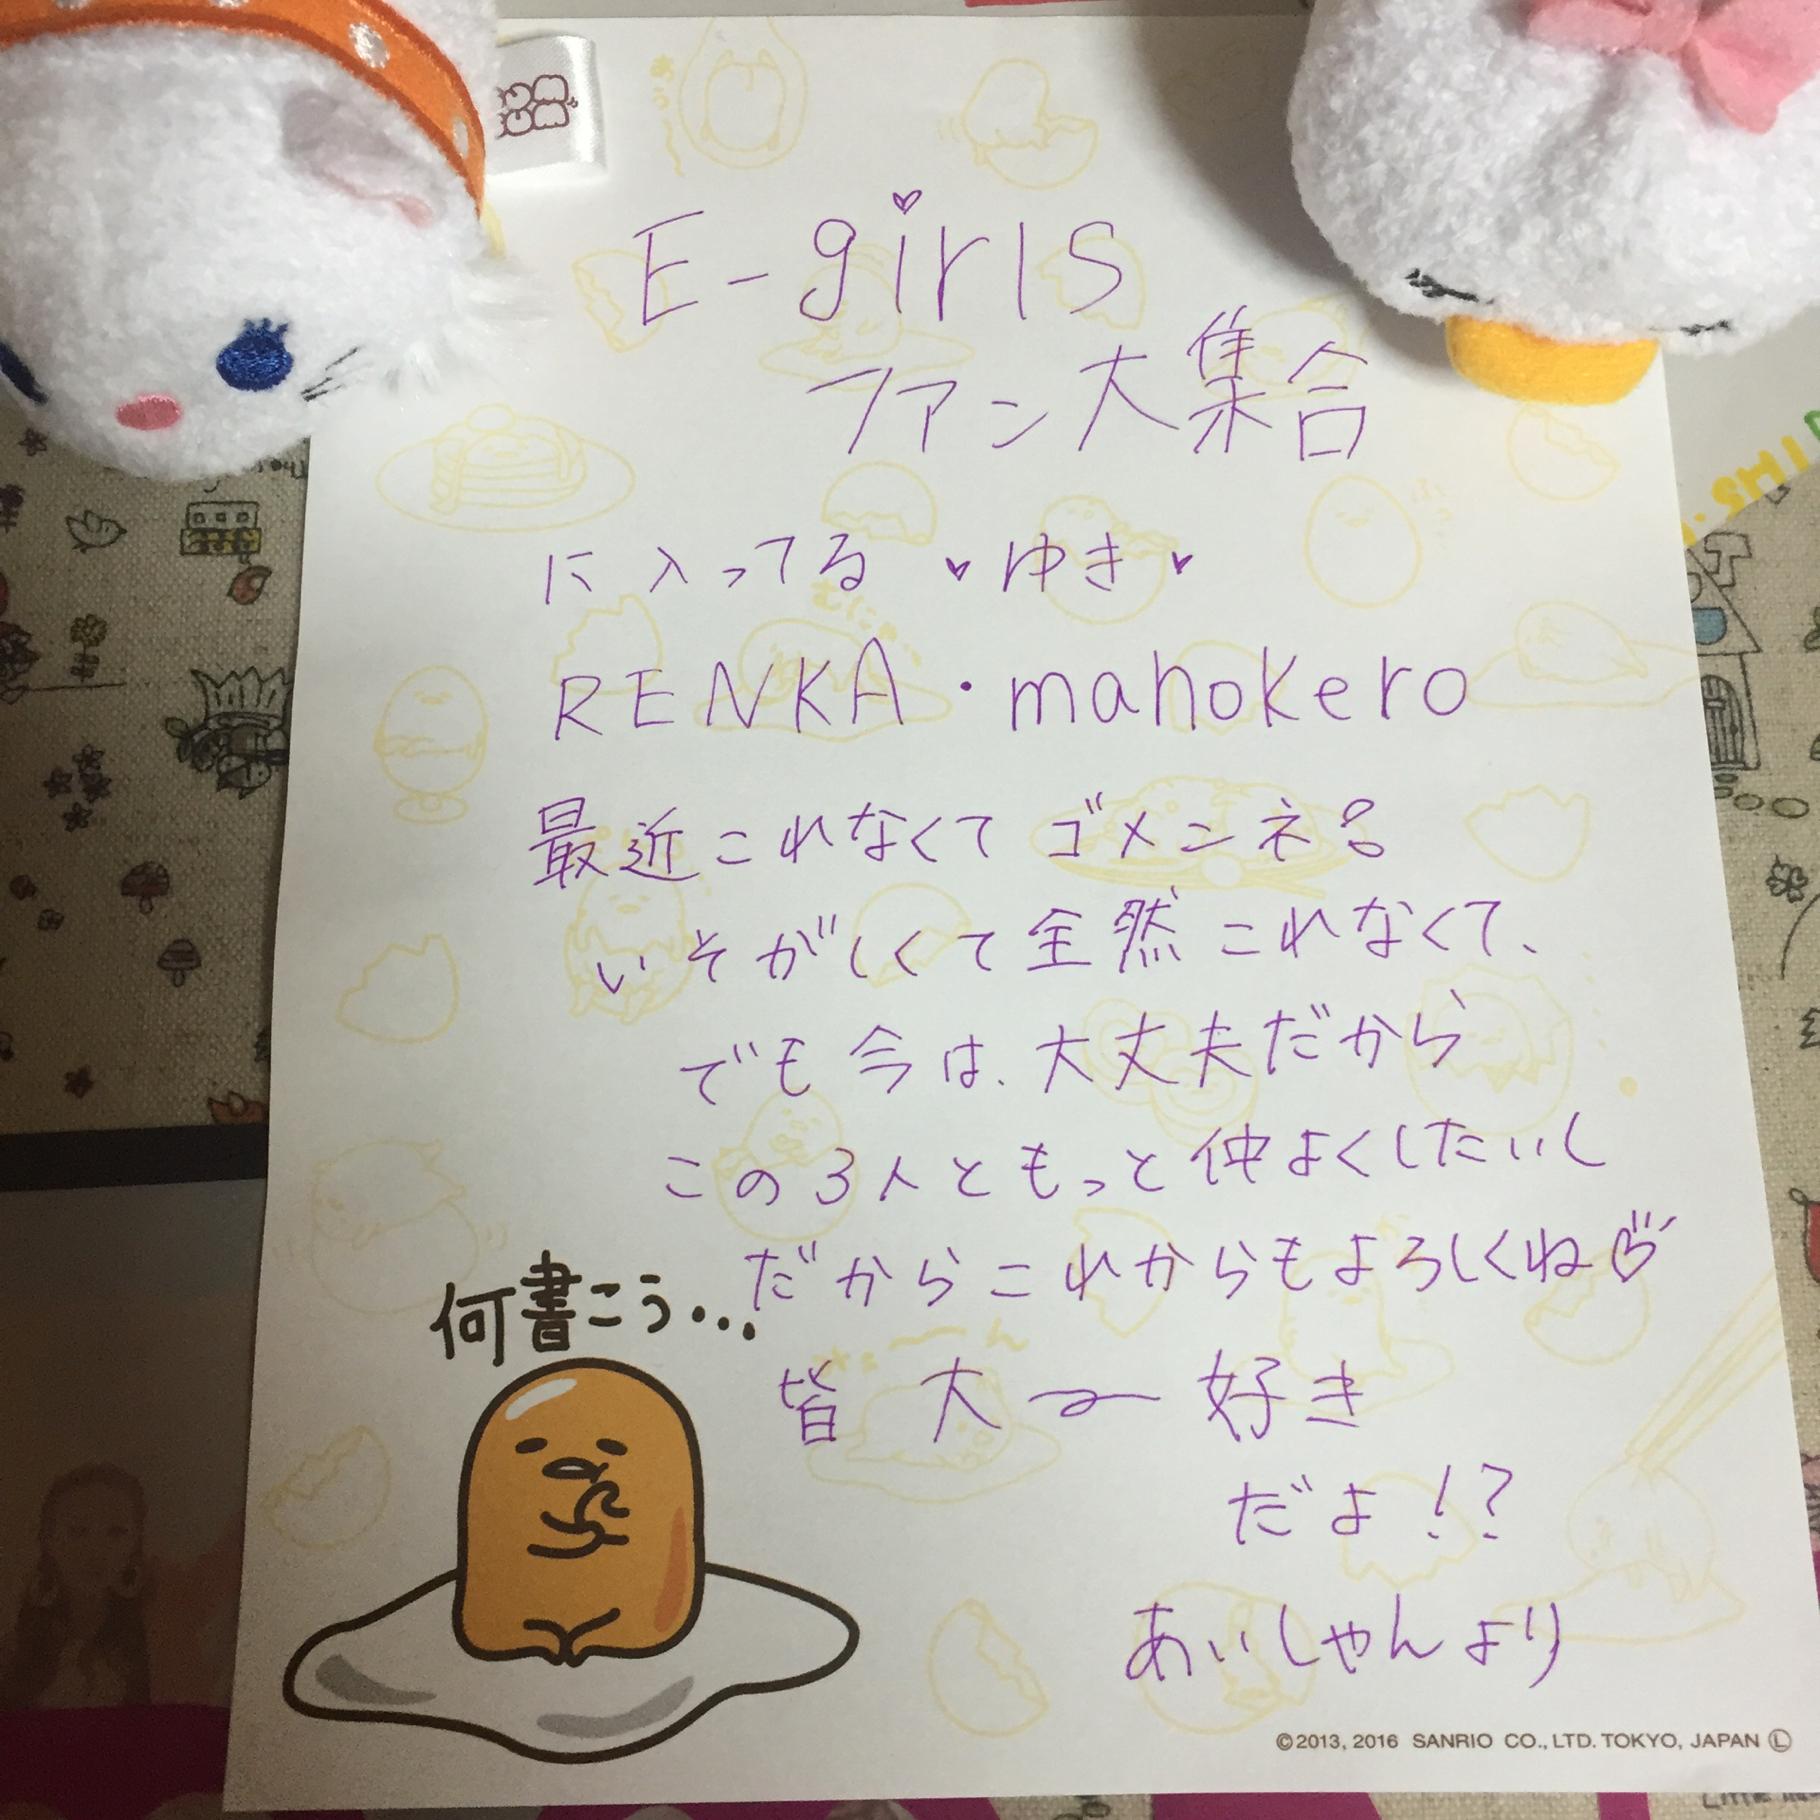 E-girls
ファン大集合
に入ってる ♥ゆき♥
RENKA・mahokero
最近これなくてゴメンネ
いそがしくて全然これなくて、
でも今は、大丈夫だから
この3人ともっと仲よくしたいし
だからこれからもよろしくね♡
何書こう...
皆 大〜好き
だよ!?
あいしゃんより
©2013, 2016 SANRIO CO., LTD. TOKYO, JAPAN Ⓛ